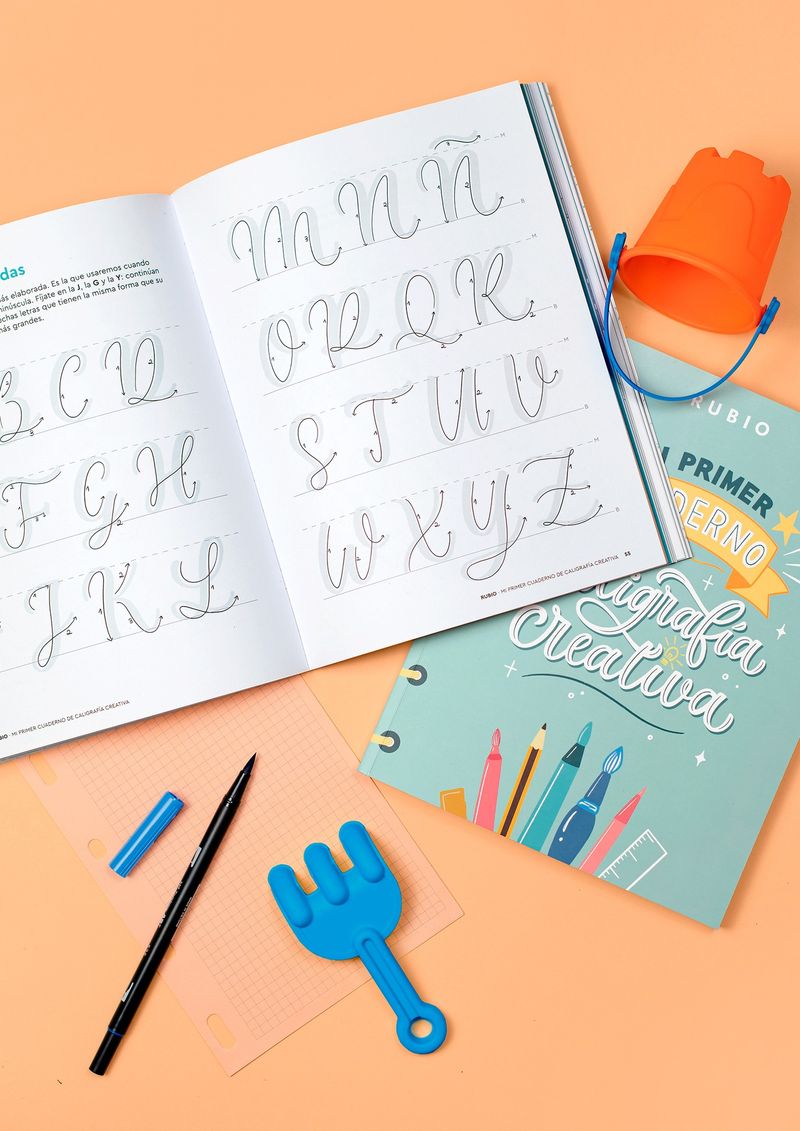 das
ás elaborada. Es la que usaremos cuando
inúscula. Fíjate en la J, la G y la Y: continúan
uchas letras que tienen la misma forma que su
ás grandes.
B C D
F G H
J K L
BIO · MI PRIMER CUADERNO DE CALIGRAFÍA CREATIVA
M N Ñ
O P Q R
S T U V
W X Y Z
RUBIO · MI PRIMER CUADERNO DE CALIGRAFÍA CREATIVA 55
RUBIO
I PRIMER
DERNO
aligrafía
Creativa